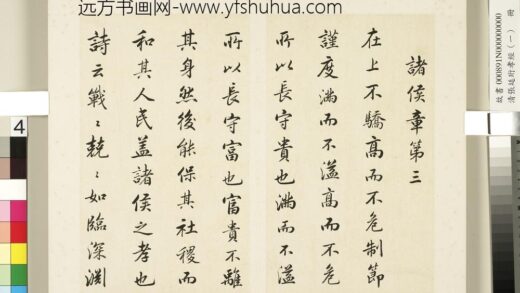 远方书画网-www.yfshuhua.com
諸侯章第三
在上不驕高而不危制節
謹度滿而不溢高而不危
所以長守貴也滿而不溢
所以長守富也富貴不離
其身然後能保其社稷而
和其人民蓋諸侯之孝也
詩云戰〻兢〻如臨深淵
故書 000891N000000000
清張廷玉書孝經（一） 冊
4